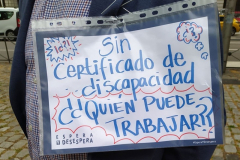 Sin
certificado de
discapacidad
¿¿QUIÉN PUEDE
TRABAJAR??
ESPERA
DESESPERA